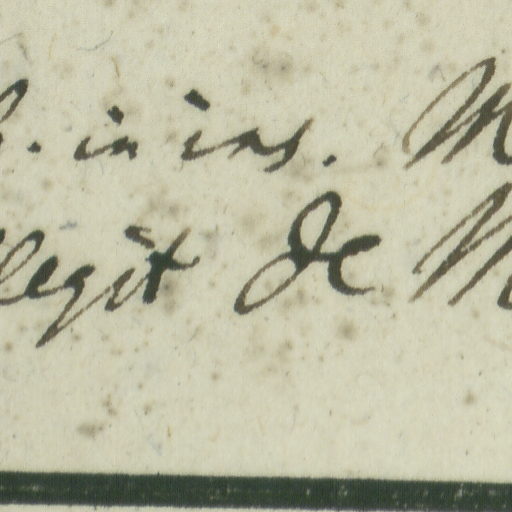 . in ins. M
llegit De M